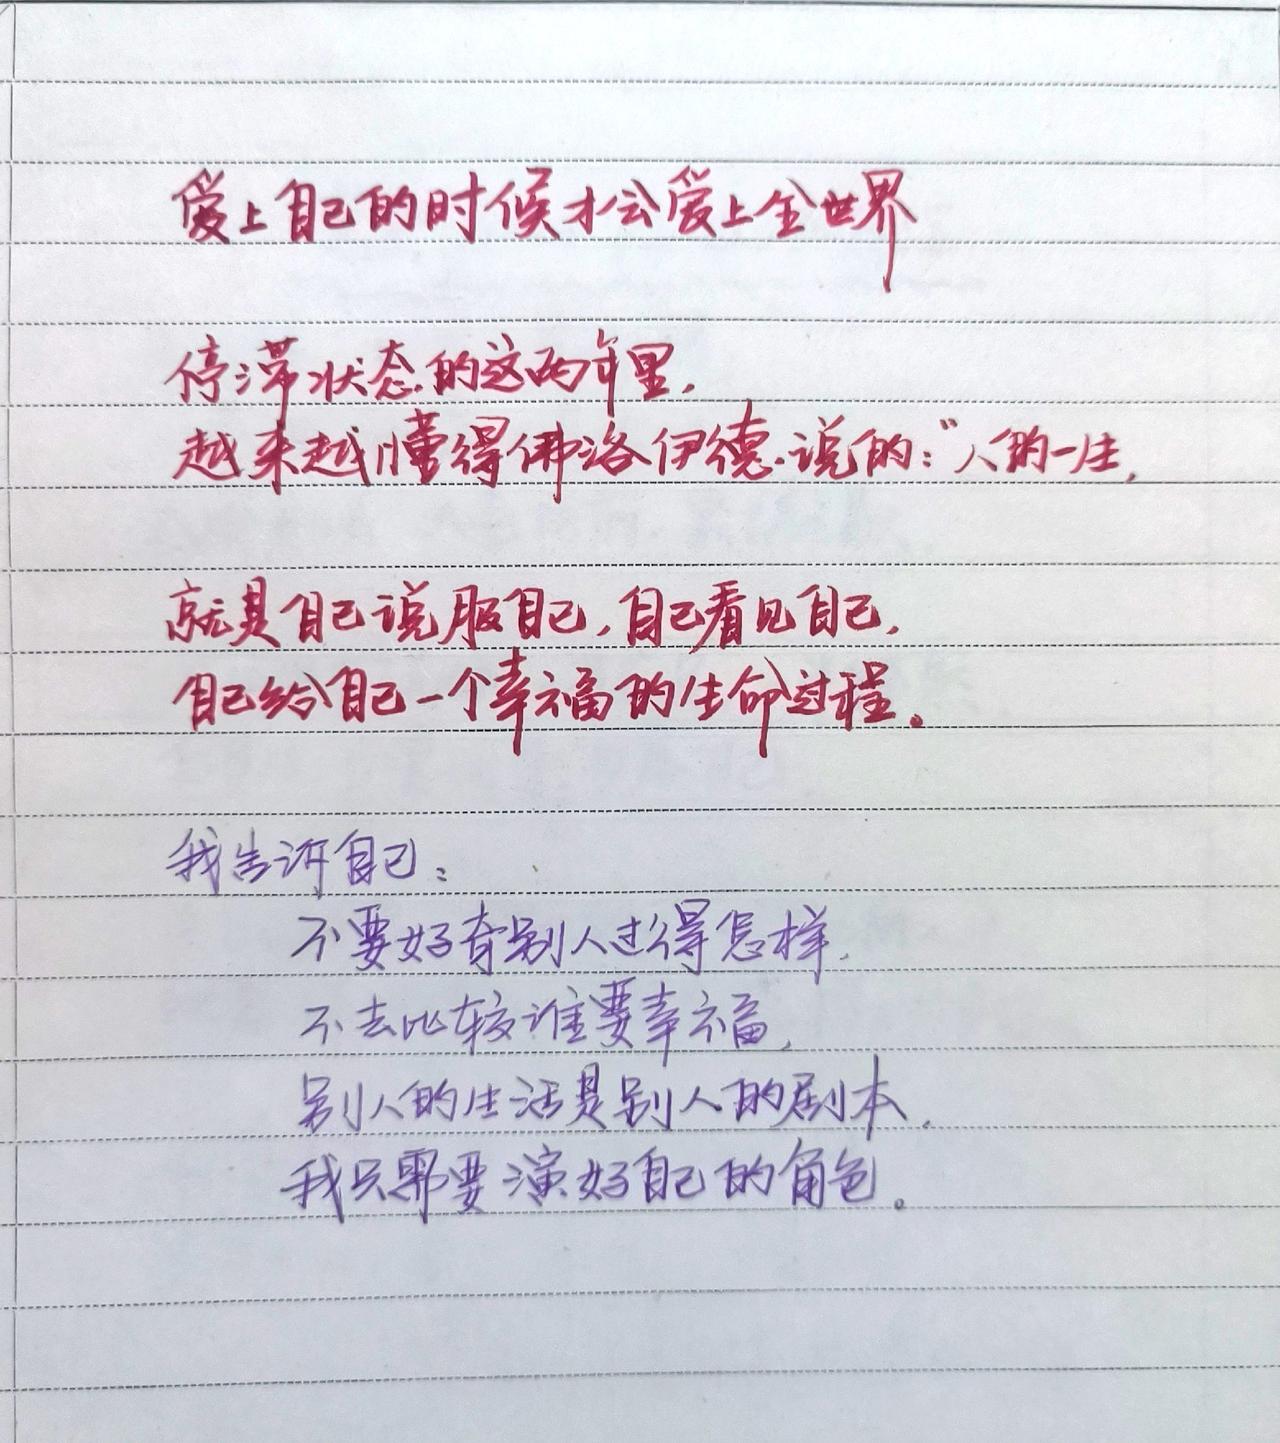 爱上自己的时候才会爱上全世界
停滞状态的这两年里,
越来越懂得佛洛伊德说的:“人的一生,
就是自己说服自己,自己看见自己,
自己给自己一个幸福的生命过程。
我告诉自己:
不要好奇别人过得怎样,
不去比较谁要幸福,
别人的生活是别人的剧本,
我只需要演好自己的角色。